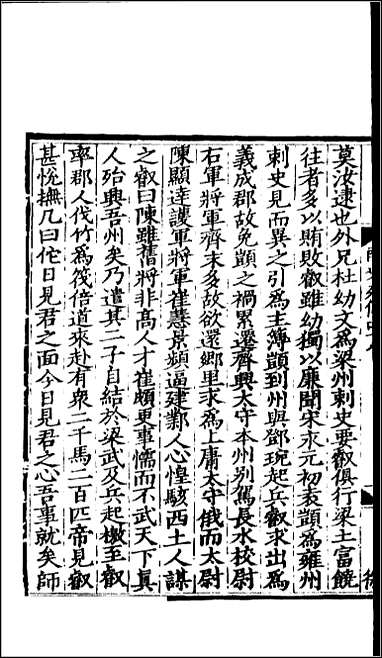 莫汝逮也外兄杜幼文為梁州刺史要叡俱行梁土富饒
往者多以賄敗叡雖幼獨以廉聞宋永元初袁顗為雍州
刺史見而異之引為主簿顗到州與鄧琬起兵叡求出為
義成郡故免顗之禍累遷齊興太守本州別駕長水校尉
右軍將軍齊末多故欲還鄉里求為上庸太守俄而太尉
陳顯達護軍將軍崔慧景頻逼建鄴人心惶駭西土人謀
之叡曰陳雖舊將非高人才崔頗更事懦而不武天下真
人殆興吾州矣乃遣其二子自結於梁武及兵起檄至叡
率郡人伐竹為筏倍道來赴有衆二千馬二百匹帝見叡
甚悅撫几曰佗日見君之面今日見君之心吾事就矣師